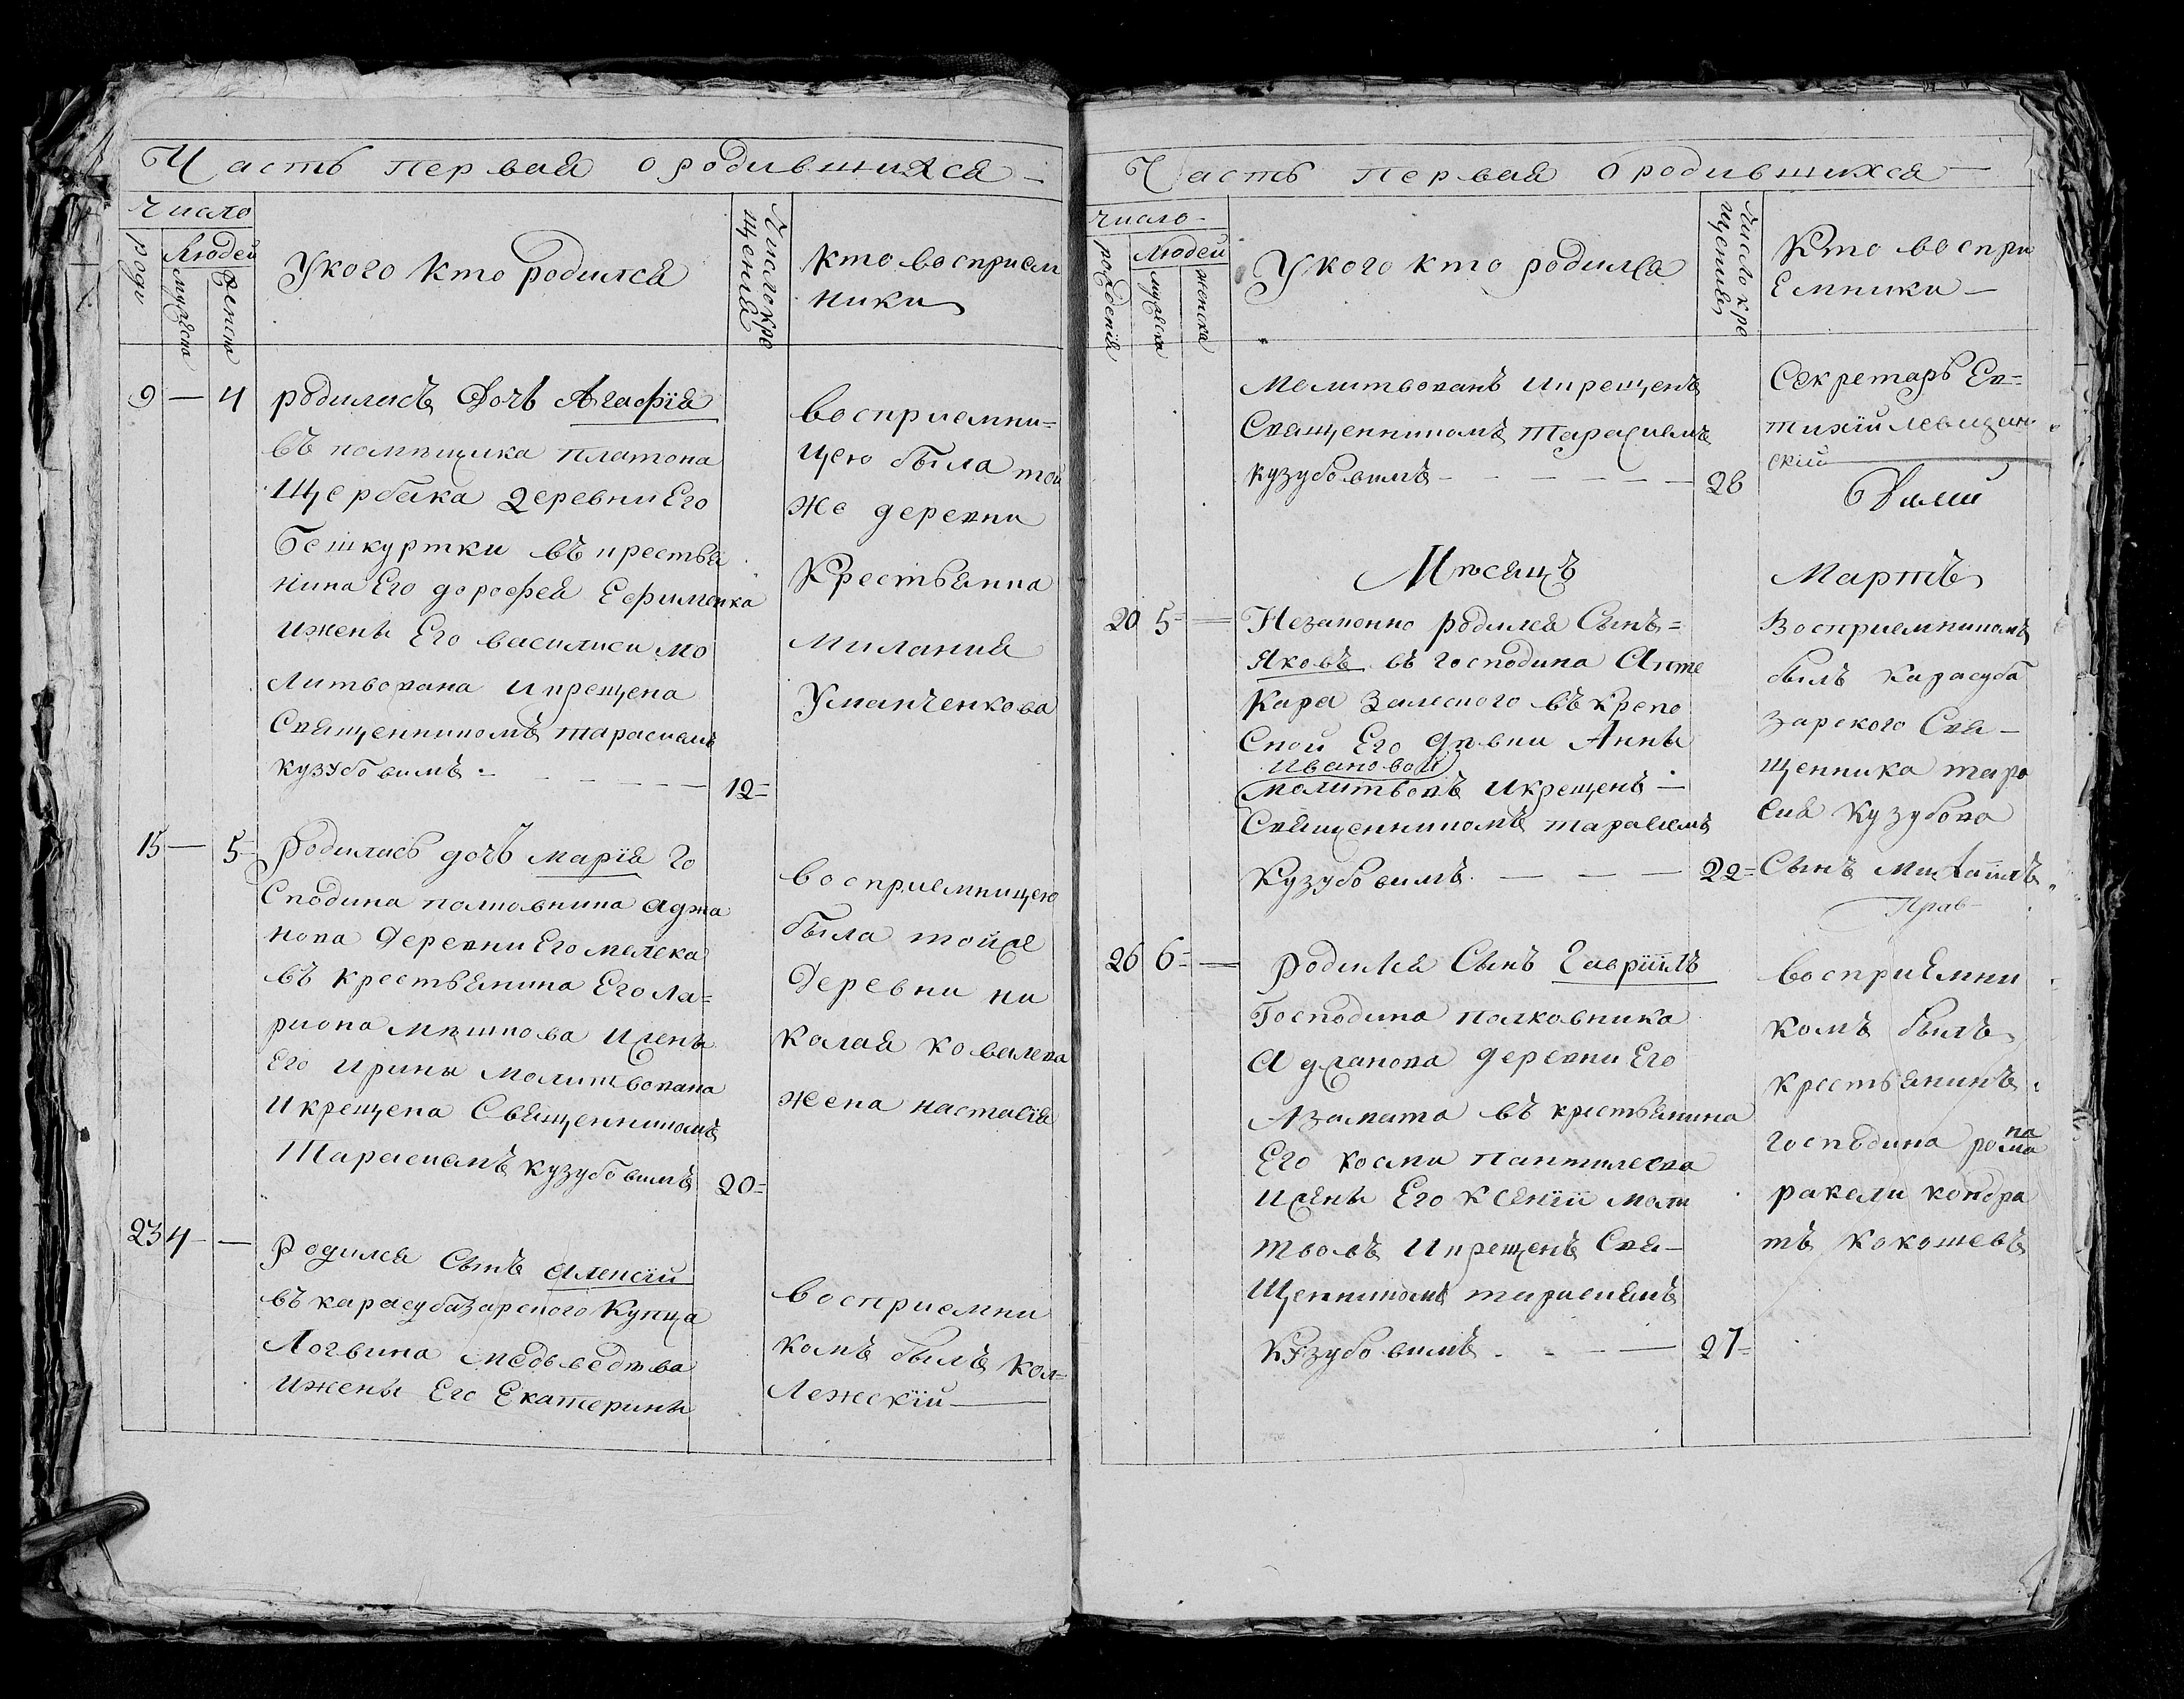 Часть первая ородившихся
число
роди
людей
мужеска
женска
Укого кто родился
Число кре
щения
кто восприем
ники
9 — 4 родиласъ Дочь Агафія
въ помпщика платона
Щербака деревни Его
Бешкуртки въ крестья
нина Его дорофея Ефименка
ижены Его василиси мо
литвована икрещена
Священникомъ тарасиемъ
кузубовимъ - - - - 12=
восприемни=
цею была той
же деревни
Крестьянка
милания
Уманченкова
15 — 5 Родилась дочь марія Го
сподина полковника аджа
нова Деревни Его мелека
въ крестьянина Его ла=
риона мпшкова ижены
Его ирины молитвована
и крещена Священникомъ
Тарасиемъ кузубовимъ 20=
восприемницею
была тойже
Деревни ни
калая ковалева
жена настасія
23 4 — Родился Сынъ алексій
въ карасубазарского купца
Логвина медведева
ижены Его Екатерины
восприемни
комъ былъ кол=
лежскій
Часть первая ородившихся
число
рожденія
людей
мужеска
женска
Укого кто родился
Число кре
щения
Кто воспри
емники
молитвованъ икрещенъ
Священникомъ тарасиемъ
кузубовимъ - - - - - 28
Секретарь Ев=
тихій левицкий
скій
Мпсяцъ
Мартъ
20 5 — Незаконно родился Сынъ=
Яковъ въ господина Апте
каря Залеского въ крепо
сной Его дпвки Анны
ивановой
молитвовъ икрещенъ —
Священникомъ тарасиемъ
кузубовимъ - — — — 22=
Восприемникомъ
былъ карасуба
зарского Свя—
щенника тара
сия кузубова
Сынъ михаиилъ
26 6 — родился Сынъ Гавріилъ
Господина полковника
аджанова деревни Его
Азамата въ крестьянина
Его косми пантилеева
ижены Его ксеніи моли
твовъ икрещенъ Свя—
щенникомъ тарасиемъ
кузубовимъ - - - — 27=
восприемни
комъ былъ
крестьянинъ
господина рома
на
ракели кондра
тъ кокошевъ